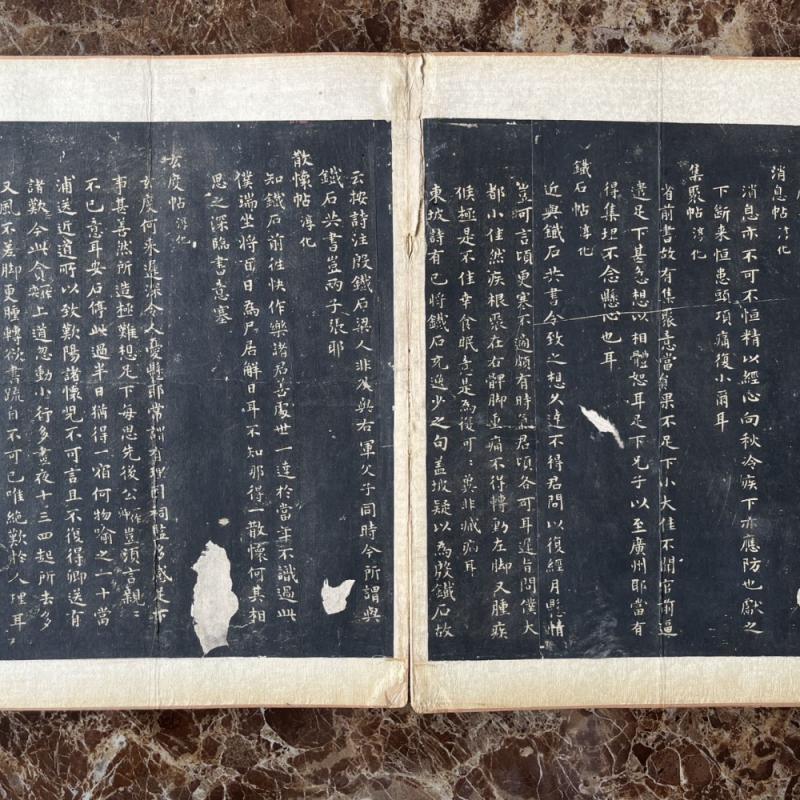 消息帖 淳化
消息亦不可不恒精以經心向秋冷疾下亦應防也獻之
下斷來恒患頭項痛復小爾耳
集聚帖 淳化
省前書故有集聚意當 果不足下小大佳不聞官前逼
遣足下甚急想以相體恕耳足下兄子以至廣州耶當有
得集理不念懸心也耳
鐵石帖 淳化
近與鐵石共書令致之想久達不得君問以復經月懸情
豈可言頃更寒不適頗有時氣君頃各可耳遲旨問僕大
都小佳然疾根聚在右髀脚重痛不得轉動左脚又腫疾
候極是不佳幸食眠意是為復可:冀非臧病耳
東坡詩有已將鐵石充逸少之句蓋坡疑以為殷鐵石故
云按詩注殷鐵石梁人非 與右軍父子同時今所謂與
鐵石共書豈兩子張耶
散懷帖 淳化
知鐵石前往快作樂諸君善處世一達於當年不識過此
僕端坐將百日為尸居解日耳不知那得一散懷何其相
思之深臨書意塞
玄度帖 淳化
玄度何來遲深令人憂懸耶常 有理因祠監多感足下
事甚善然所造極難想足下每思先後公 豈須言親:
不已意耳安石停此過半日猶得一宿何物喻之一十當
浦送近道所以致歎陽諸懷兒不可言且不復得卿送省
諸歎今此 上道忽動小行多晝夜十三四起所去多
又風不差脚更腫轉欲書疏自不可已唯絕歎於人理耳